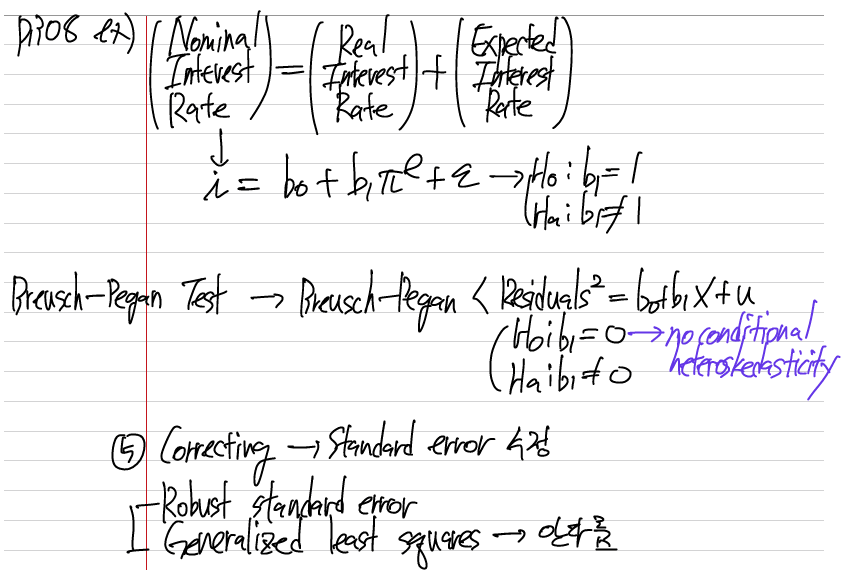 p308 ex) (Nominal Interest Rate) = (Real Interest Rate) + (Expected Interest Rate)
↓
i = b₀ + b₁πᵉ + ε → (H₀ : b₁ = 1
Ha : b₁ ≠ 1
Breusch-Pegan Test → Breusch-Pegan < Residuals² = b₀+b₁X+u
(H₀ : b₁ = 0 → no conditional
Ha : b₁ ≠ 0 heteroskedasticity
⑤ Correcting → Standard error 수정
Robust standard error
Generalized least squares → 안다룸